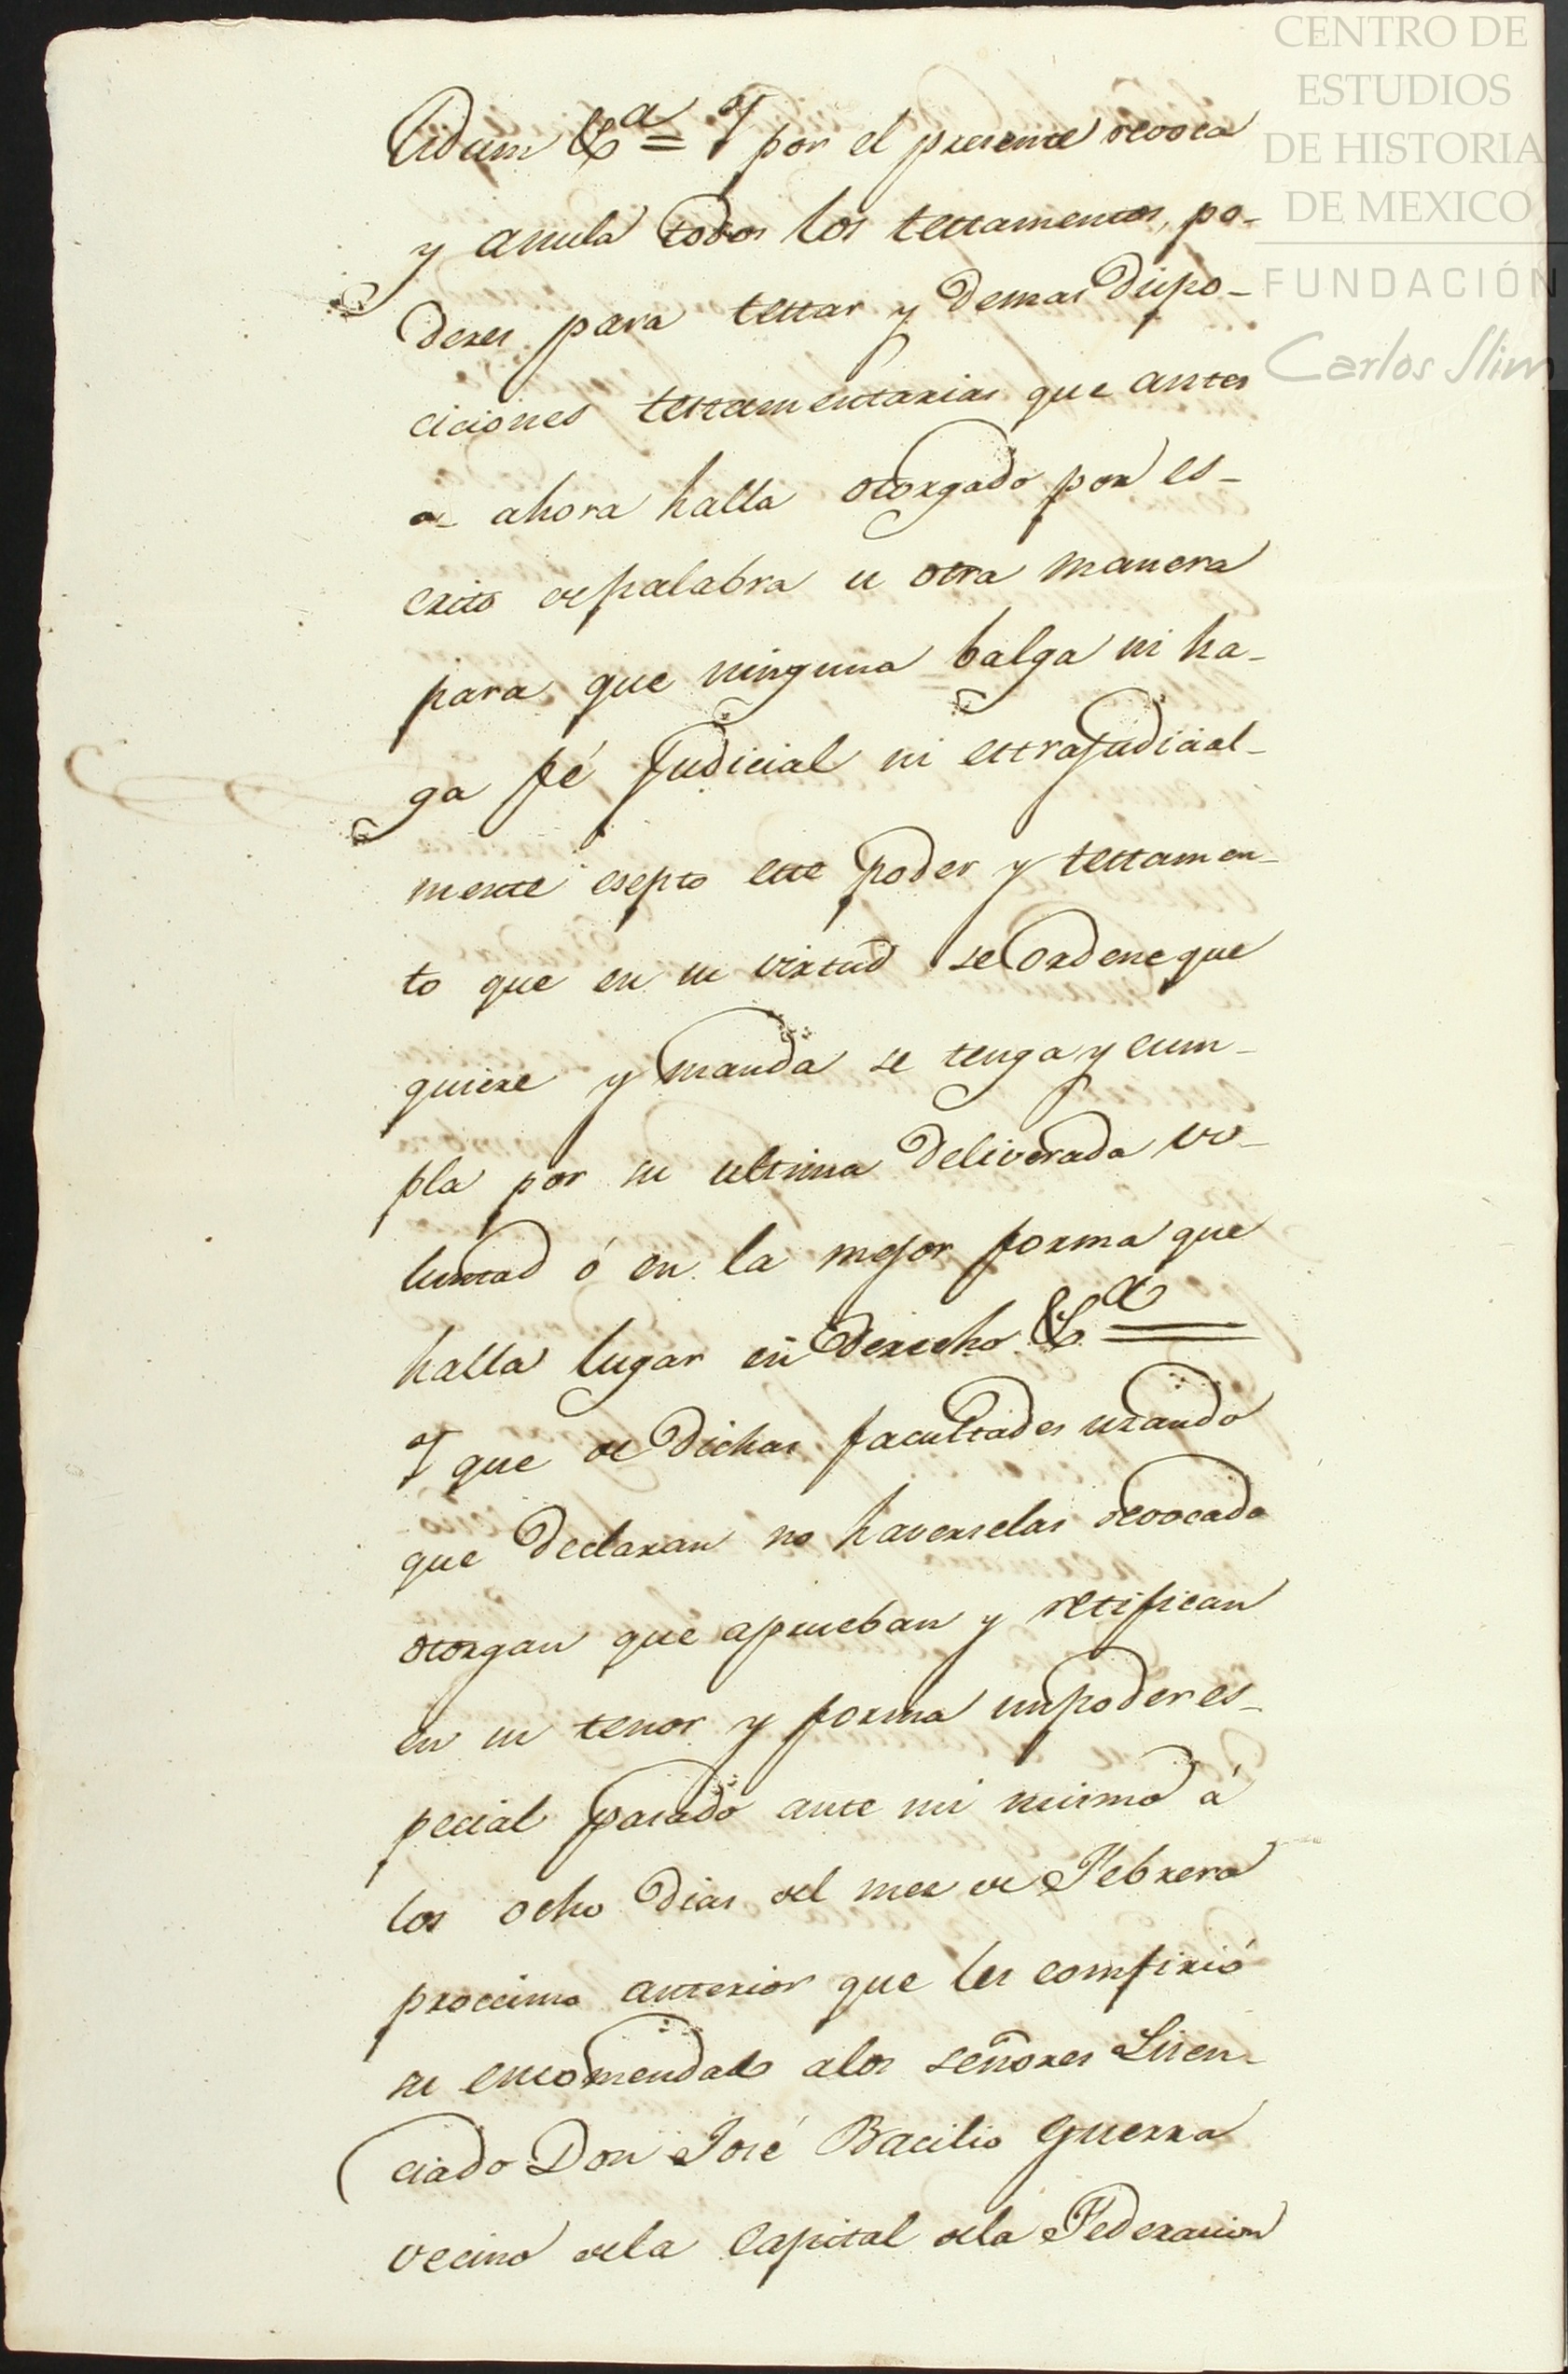 CENTRO DE
ESTUDIOS
DE HISTORIA
DE MEXICO
FUNDACIÓN
Carlos Slim
&a = Y por el presente revoca
y anula todos los testamentos, po-
deres para testar y demas dispo-
ciciones testamentarias que antes
de ahora halla otorgado por es-
crito de palabra u otra manera
para que ninguna balga ni ha-
ga fé Judicial ni estraJudicial-
mente esepto este poder y testamen-
to que en su virtud se Ordene que
quiere y manda se tenga y cum-
pla por su ultima deliverada vo-
luntad ó en la mejor forma que
halla lugar en derecho &a =
Y que de dichas facultades uzando
que declaran no haverselas revocado
otorgan que aprueban y retifican
en su tenor y forma un poder es-
pecial pasado ante mi mismo á
los ocho dias del mes de Febrero
procsimo anterior que les comfirió
su encomendado a los señores Licen-
ciado Don José Bacilio Guerra
vecino de la Capital de la Federacion